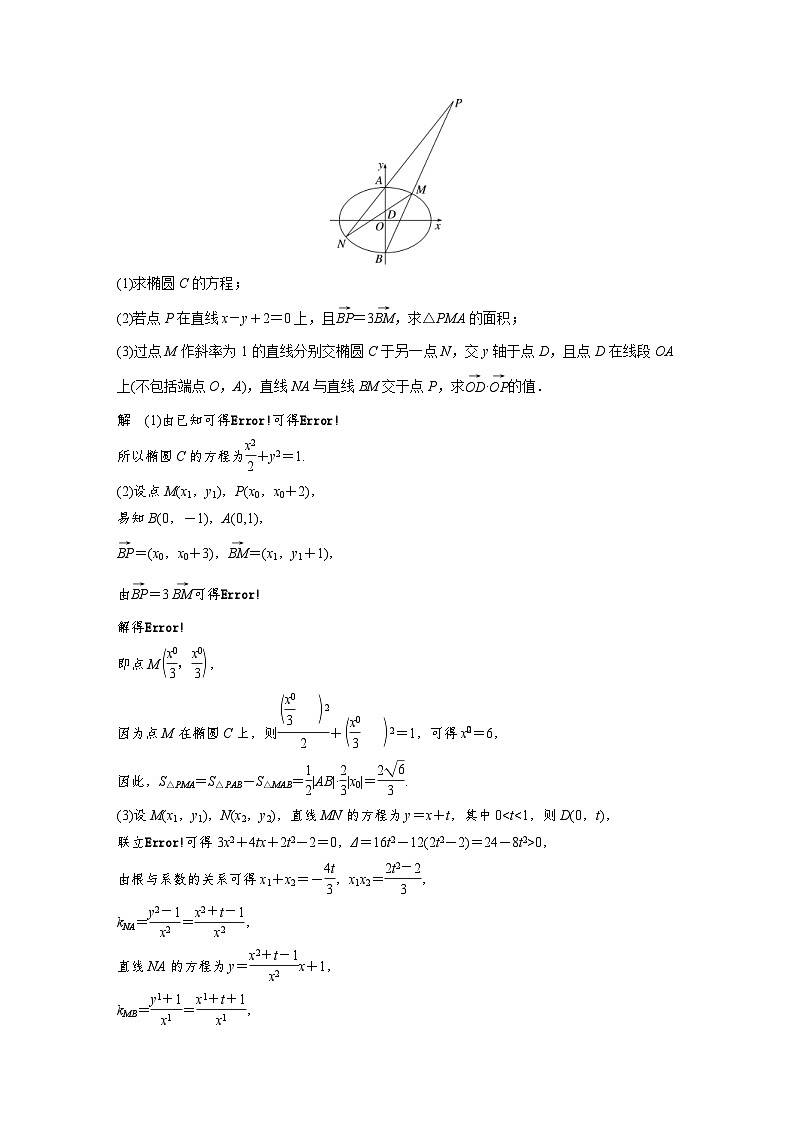 P
y
A
M
D
O
x
N
B
(1)求椭圆 C 的方程；
(2)若点 P 在直线 x－y＋2＝0 上，且\overrightarrow{BP}＝3\overrightarrow{BM}，求△PMA 的面积；
(3)过点 M 作斜率为 1 的直线分别交椭圆 C 于另一点 N，交 y 轴于点 D，且点 D 在线段 OA
上(不包括端点 O，A)，直线 NA 与直线 BM 交于点 P，求\overrightarrow{OD}·\overrightarrow{OP}的值．
解　(1)由已知可得Error!可得Error!
所以椭圆 C 的方程为\frac{x^2}{2}＋y^2＝1.
(2)设点 M(x_1，y_1)，P(x_0，x_0＋2)，
易知 B(0，－1)，A(0,1)，
\overrightarrow{BP}＝(x_0，x_0＋3)，\overrightarrow{BM}＝(x_1，y_1＋1)，
由\overrightarrow{BP}＝3 \overrightarrow{BM}可得Error!
解得Error!
即点 M(\frac{x0}{3}，\frac{x0}{3})，
因为点 M 在椭圆 C 上，则\frac{(\frac{x0}{3})^2}{2}＋(\frac{x0}{3})^2＝1，可得 x＝6，
因此，S_{△PMA}＝S_{△PAB}－S_{△MAB}＝\frac{1}{2}|AB|·\frac{2}{3}|x_0|＝\frac{2\sqrt{6}}{3}.
(3)设 M(x_1，y_1)，N(x_2，y_2)，直线 MN 的方程为 y＝x＋t，其中 0<t<1，则 D(0，t)，
联立Error!可得 3x^2＋4tx＋2t^2－2＝0，Δ＝16t^2－12(2t^2－2)＝24－8t^2>0，
由根与系数的关系可得 x_1＋x_2＝－\frac{4t}{3}，x_1x_2＝\frac{2t^2－2}{3}，
k_{NA}＝\frac{y2－1}{x2}＝\frac{x2＋t－1}{x2}，
直线 NA 的方程为 y＝\frac{x2＋t－1}{x2}x＋1，
k_{MB}＝\frac{y1＋1}{x1}＝\frac{x1＋t＋1}{x1}，